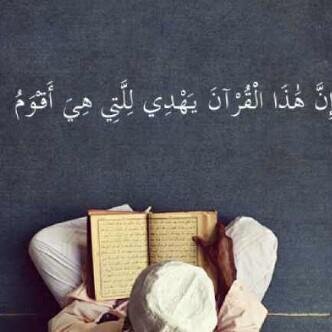 إِنَّ هَٰذَا الْقُرْآنَ يَهْدِي لِلَّتِي هِيَ أَقْوَمُ